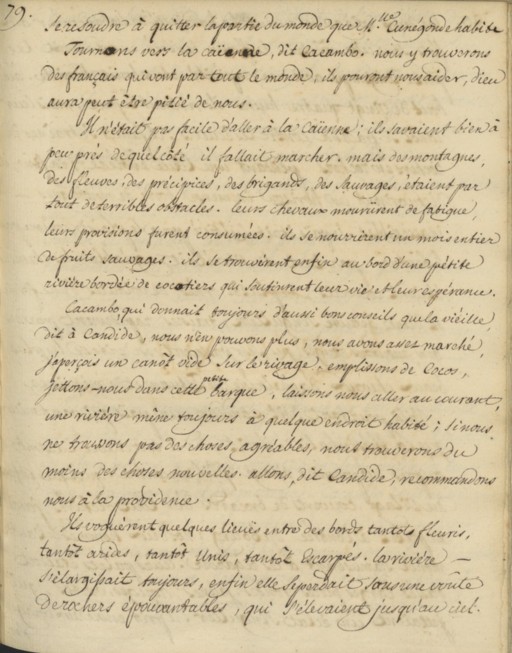 79.
se resoudre à quitter la partie du monde que M.lle Cunegonde habite
Tournons vers la caïenne, dit Cacambo. nous y trouverons
des français qui vont par tout le monde, ils pouront nous aider, dieu
aura peut être pitié de nous.
Il n'était pas facile d'aller à la Caïenne; ils savaient bien à
peu prés de quel côté il fallait marcher. mais des montagnes,
des fleuves, des précipices, des brigands, des Sauvages, étaient par
tout de terribles obstacles. leurs chevaux mourürent de fatigue,
leurs provisions furent consumées. ils se nourrirent un mois entier
de fruits sauvages. ils se trouvérent enfin au bord d'une petite
riviére bordée de cocotiers qui soutinrent leur vie et leur espérance.
Cacambo, qui donnait toujours d'aussi bons conseils que la vieille,
dit à Candide, nous n'en pouvons plus, nous avons assez marché,
j'aperçois un canot vide sur le rivage. emplissons de Cocos,
jettons-nous dans cette petite barque, laissons nous aller au courant,
une riviére méne toujours à quelque endroit habité; si nous
ne trouvons pas des choses agréables, nous trouverons du
moins des choses nouvelles. allons, dit Candide, recommandons
nous à la providence.
Ils voguérent quelques lieuës entre des bords tantôt fleuris,
tantôt arides, tantôt Unis, tantôt Escarpés. la riviére —
s'élargissait toujours, enfin elle se perdait sous une voûte
de rochers épouvantables, qui s'élevaient jusqu'au ciel.